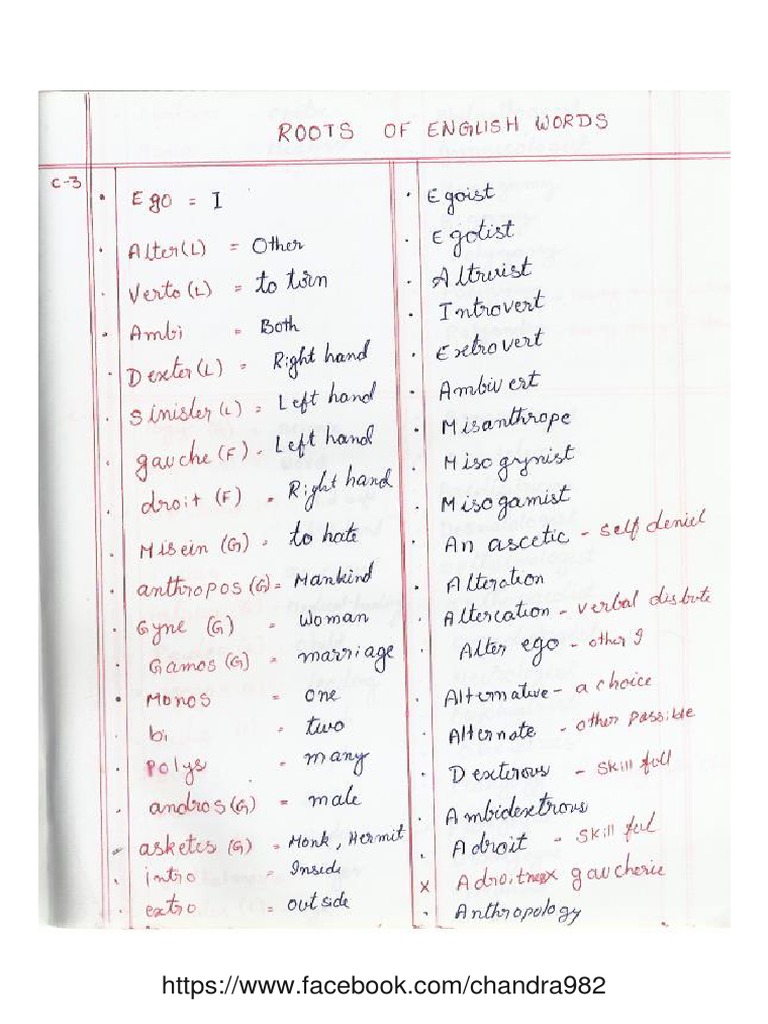 ROOTS OF ENGLISH WORDS
C-3
Ego = I
Alter(L) = Other
Verto (L) = to turn
Ambi = Both
Dexter(L) = Right hand
Sinister (L) = Left hand
gauche (F) - Left hand
droit (F) = Right hand
Misein (G) = to hate
anthropos (G) = Mankind
Gyne (G) = Woman
Gamos (G) = marriage
Monos = one
bi = two
Polys = many
andros (G) = male
asketes (G) = Monk, Hermit
intro = Inside
extro = outside
Egoist
Egotist
Altruist
Introvert
Extrovert
Ambivert
Misanthrope
Misogynist
Misogamist
An ascetic - self deniel
Alteration
Altercation - verbal disbute
Alter ego - other I
Alternative - a choice
Alternate - other possible
Dexterous - Skill full
Ambidextrous
Adroit - Skill ful
x Adroitness gaucherie
Anthropology
https://www.facebook.com/chandra982